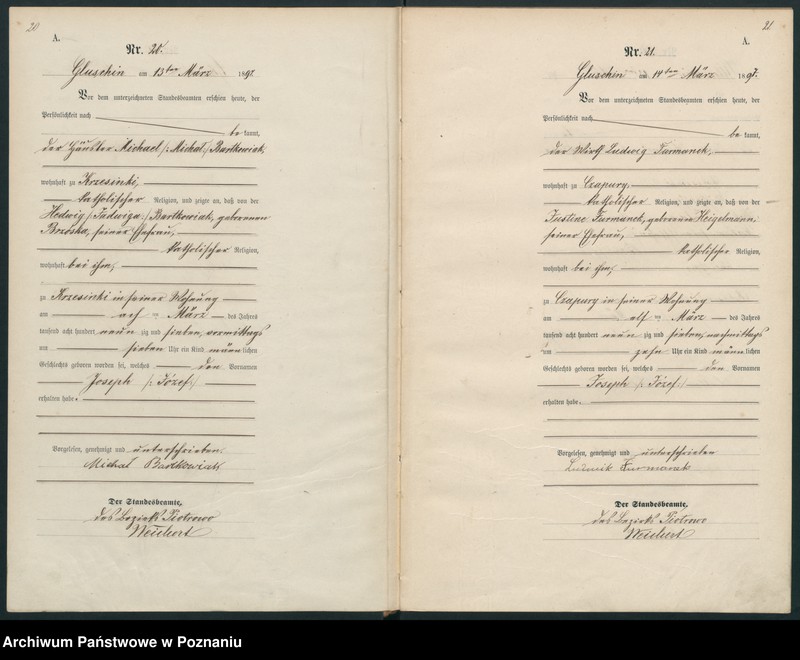 20
A.
Nr. 20.
Gluschin am 13ten März 1897
Vor dem unterzeichneten Standesbeamten erschien heute, der
Persönlichkeit nach
be kannt,
der Häusler Michael /: Michal :/ Bartkowiak,
wohnhaft zu Krzesinki,
katholischer Religion, und zeigte an, daß von der
Hedwig /: Jadwiga :/ Bartkowiak, geborenen
Brzoska, seiner Ehefrau,
katholischer Religion,
wohnhaft bei ihm,
zu Krzesinki in seiner Wohnung
am März des Jahres
tausend acht hundert neun zig und sieben, vormittags
um sieben Uhr ein Kind männ lichen
Geschlechts geboren worden sei, welches den Vornamen
Joseph /: Józef :/
erhalten habe.
Vorgelesen, genehmigt und unterschrieben
Michał Bartkowiak
Der Standesbeamte,
des Bezirks Piotrowo
Weichert
21
A.
Nr. 21.
Gluschin am 14ten März 1897.
Vor dem unterzeichneten Standesbeamten erschien heute, der
Persönlichkeit nach
be kannt,
der Wirth Ludwig Furmanek,
wohnhaft zu Czapury,
katholischer Religion, und zeigte an, daß von der
Justine Furmanek, geborenen Heigelmann,
seiner Ehefrau,
katholischer Religion,
wohnhaft bei ihm,
zu Czapury in seiner Wohnung
am elf ten März des Jahres
tausend acht hundert neun zig und sieben, nachmittags
um zehn Uhr ein Kind männ lichen
Geschlechts geboren worden sei, welches den Vornamen
Joseph /: Józef :/
erhalten habe.
Vorgelesen, genehmigt und unterschrieben
Ludwik Furmanek
Der Standesbeamte,
des Bezirks Piotrowo
Weichert
Archiwum Państwowe w Poznaniu